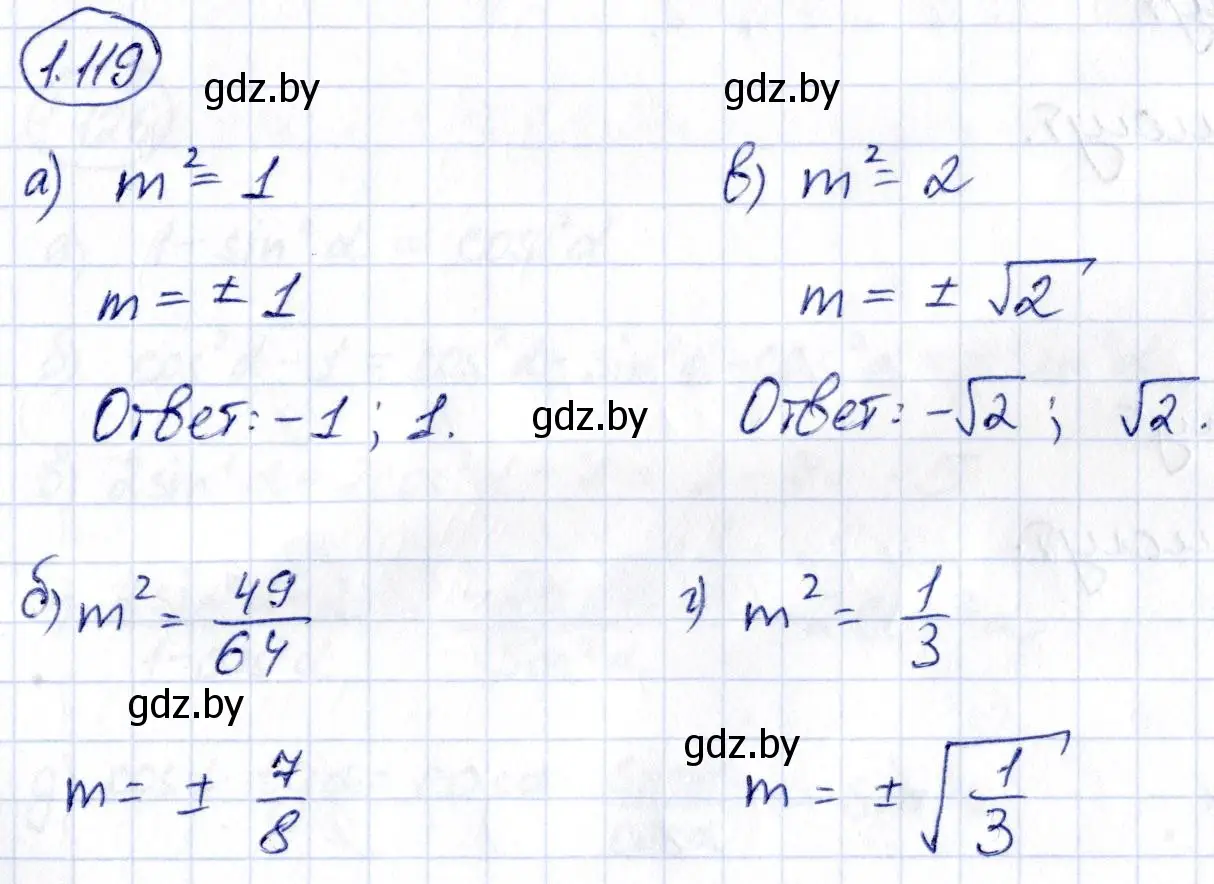 1.119
gdz.by
gdz.by
а) m² = 1
m = ± 1
Ответ: -1; 1.
gdz.by
в) m² = 2
m = ± √2
Ответ: -√2; √2.
б) m² = 49/64
gdz.by
m = ± 7/8
г) m² = 1/3
gdz.by
m = ± √(1/3)